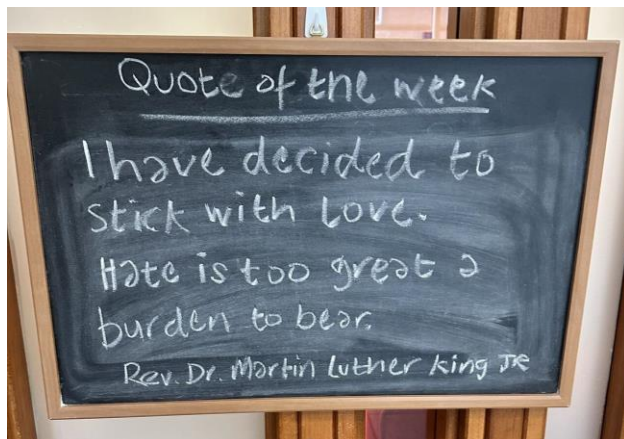 Quote of the week
I have decided to
stick with love.
Hate is too great a
burden to bear.
Rev. Dr. Martin Luther King JR